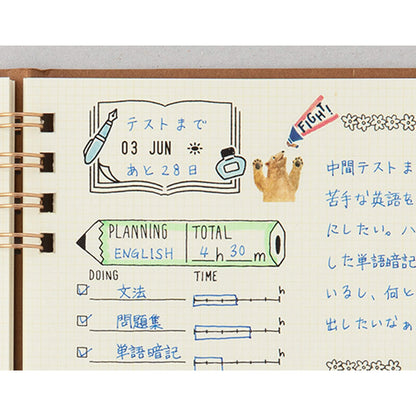 テストまで
03 JUN
あと28日
FIGHT!
PLANNING TOTAL
ENGLISH 4h 30m
DOING TIME
文法 h
問題集 h
単語暗記 h
中間テストま
苦手な英語を
にしたい。ハ
した単語暗記
いるし、何と
出したいなぁ